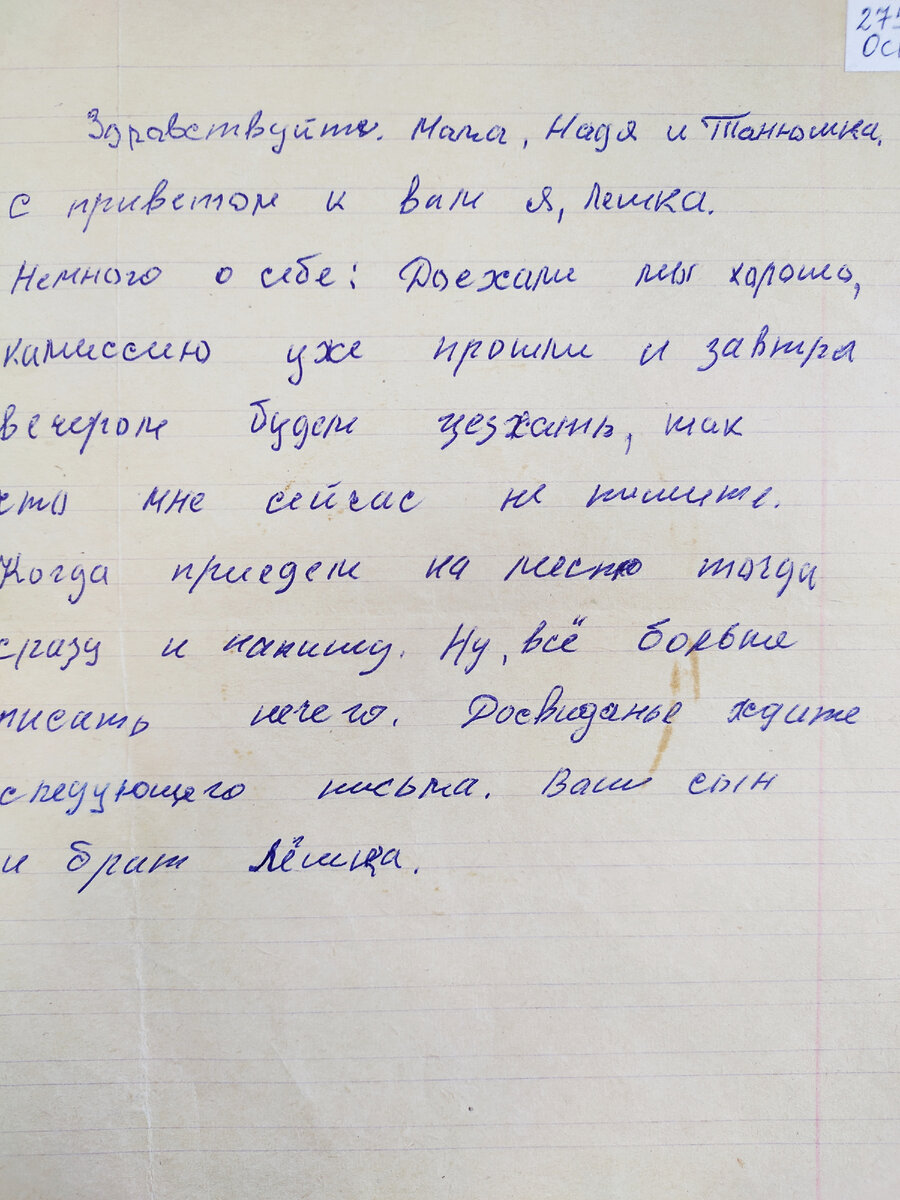 275
Ос
Здравствуйте. Мама, Надя и Танюшка.
с приветом к вам я, Лешка.
Немного о себе: Доехали мы хорошо,
камиссию уже прошли и завтра
вечером будем уезжать, так
что мне сейчас не пишите.
Когда приедем на место тогда
сразу и напишу. Ну, всё больше
писать нечего. Досвиданье ждите
следующего письма. Ваш сын
и брат Лёшка.